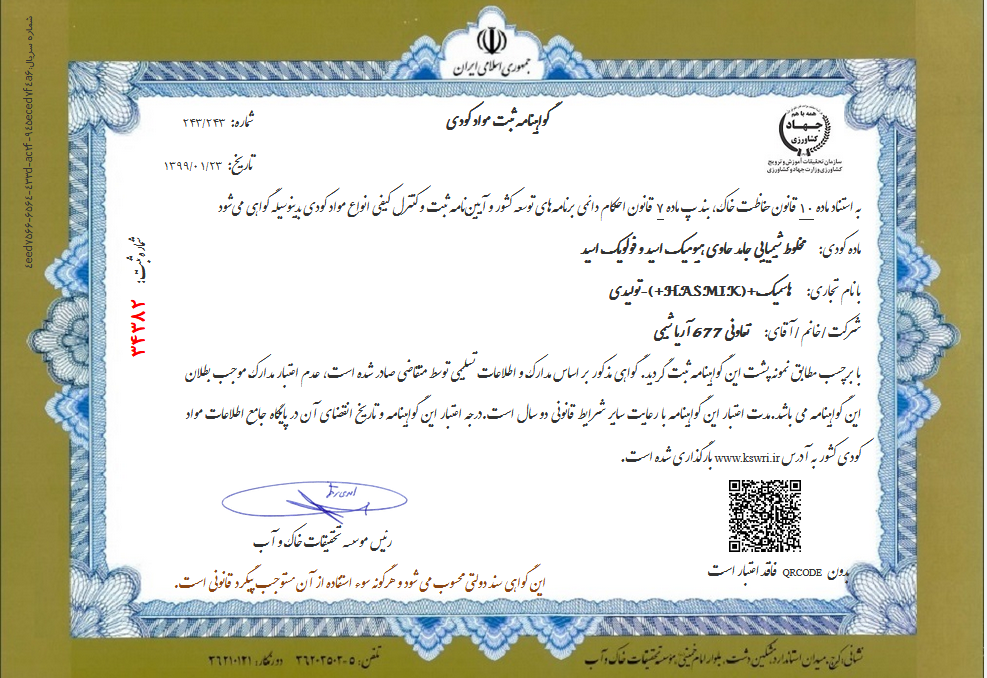 جمهوری اسلامی ایران
گواهینامه ثبت مواد کودی
شماره: ۲۴۳/۲۴۳
تاریخ: ۱۳۹۹/۰۱/۲۳
همه با هم
جهاد
کشاورزی
سازمان تحقیقات آموزش و ترویج
کشاورزی وزارت جهاد کشاورزی
به استناد ماده ۱۰ قانون حفاظت خاک، بند پ ماده ۷ قانون احکام دائمی برنامه های توسعه کشور و آیین نامه ثبت و کنترل کیفی انواع مواد کودی بدینوسیله گواهی می شود
ماده کودی: مخلوط شیمیایی جامد حاوی هیومیک اسید و فولویک اسید
با نام تجاری: هاسمیک+(HASMIK+)-تولیدی
شرکت/خانم/آقای: تعاونی 677 آریا شیمی
با برچسب مطابق نمونه پشت این گواهینامه ثبت گردید. گواهی مذکور بر اساس مدارک و اطلاعات تسلیمی توسط متقاضی صادر شده است، عدم اعتبار مدارک موجب بطلان
این گواهینامه می باشد.مدت اعتبار این گواهینامه با رعایت سایر شرایط قانونی دو سال است.درجه اعتبار این گواهینامه و تاریخ انقضای آن در پایگاه جامع اطلاعات مواد
کودی کشور به آدرس www.kswri.ir بارگذاری شده است.
شماره ثبت: ۳۴۳۸۲
رئیس موسسه تحقیقات خاک و آب
بدون QRCODE فاقد اعتبار است
این گواهی سند دولتی محسوب می شود و هرگونه سوء استفاده از آن مستوجب پیگرد قانونی است.
نشانی: کرج، میدان استاندارد، مشکین دشت، بلوار امام خمینی، مؤسسه تحقیقات خاک و آب
تلفن: ۵-۳۶۲۰۳۵۰۲ دورنگار: ۳۶۲۱۰۱۲۱